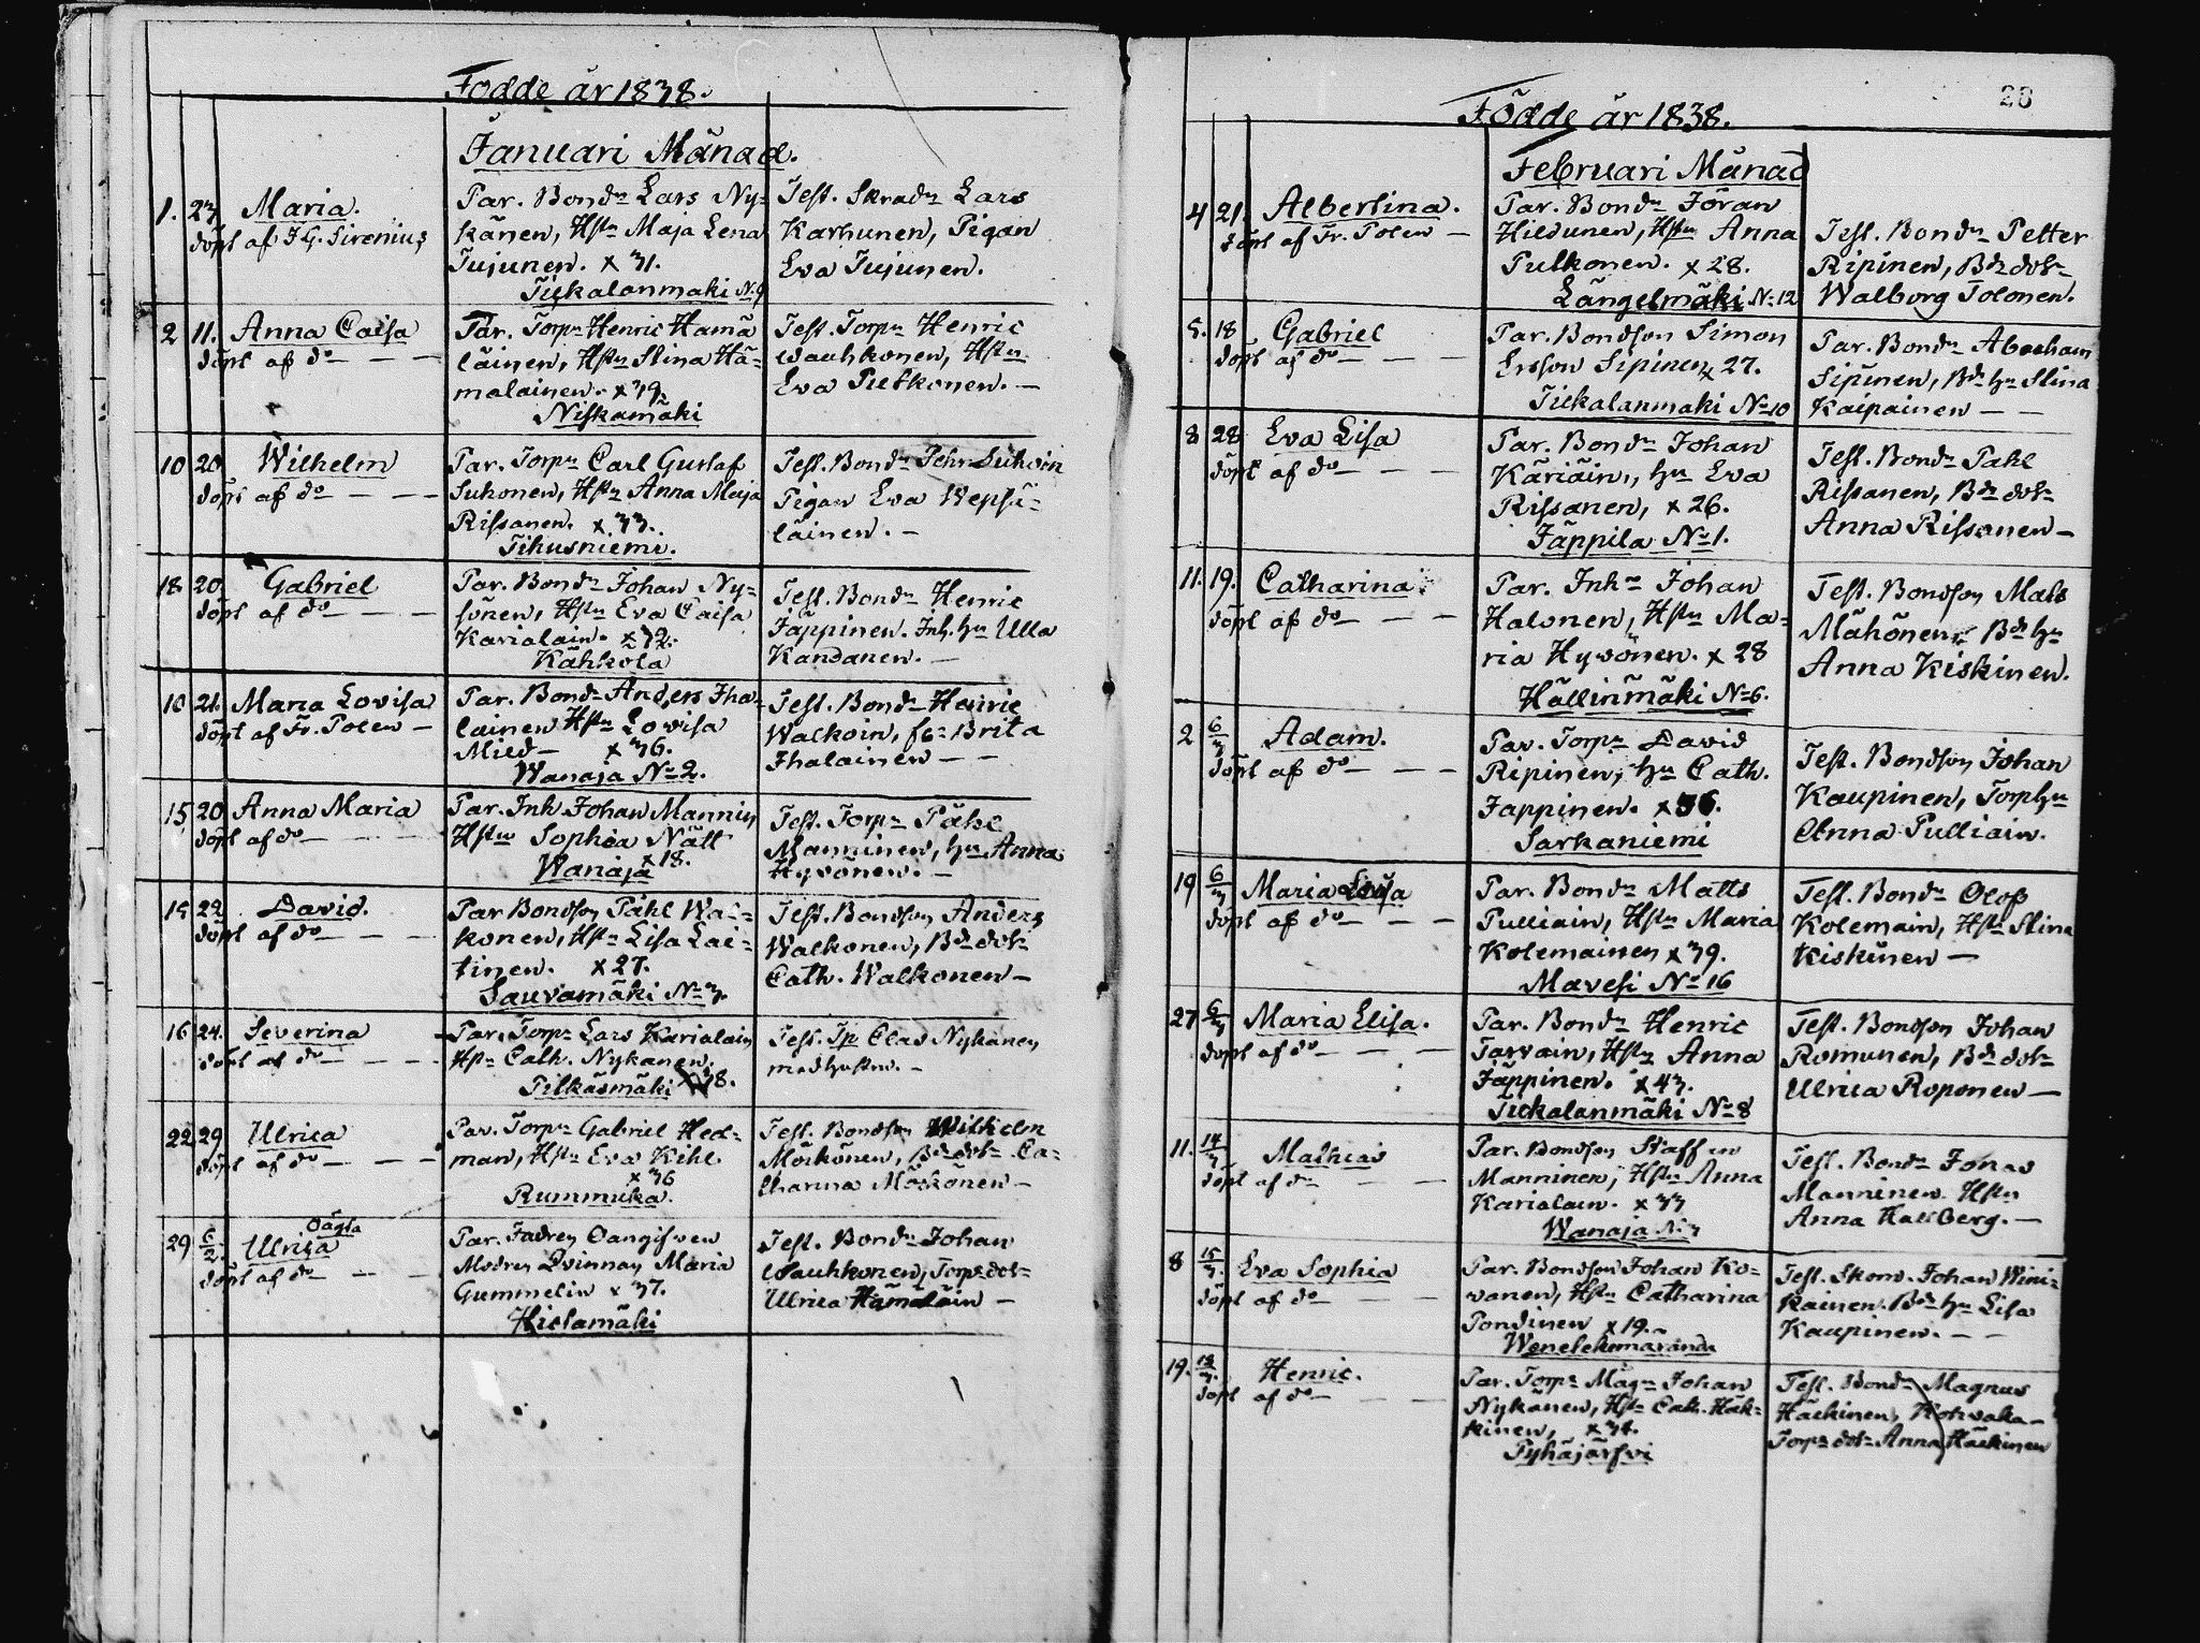 Födde år 1838.
Januari Månad.
1. 23 Maria.
döpt af J G. Sirenius
Par. Bondn Lars Ny=
känen, Hstn Maja Lena
Jujunen. x 31.
Tickalanmäki No 9
Test. Skradn Lars
Karhunen, Pigan
Eva Jujunen.
2 11. Anna Caisa
döpt af do — — —
Par. Torpn Henric Hamä
läinen, Hstn Stina Hä=
malainen. x 39
Niskamäki
Test. Torpn Henric
Wauhkonen, Hstn
Eva Putkonen. —
10 20 Wilhelm
döpt af do — — —
Par. Torpn Carl Gustaf
Suhonen, Hstn Anna Maja
Rissanen. x 33.
Tihusniemi.
Test. Bondn Pehr Suhoin
Pigan Eva Wepsä=
läinen. —
18 20 Gabriel
döpt af do — — —
Par. Bondn Johan Ny=
sönen, Hstn Eva Caisa
Karialain. x 32.
Kähkola
Test. Bondn Henric
Jäppinen. Inh. hu Ulla
Kandanen. —
10 21. Maria Lovisa
döpt af Fr. Polen —
Par. Bondn Anders Iha=
lainen Hstn Lowisa
Mild — x 36.
Wanaja No 2.
Test. Bondn Henric
Walkoin, Brita
Ihalainen — —
15 20 Anna Maria
döpt af do — — —
Par. Inh Johan Mannin
Hstn Sophia Nätt
x 18.
Wanaja
Test. Torpn Påhl
Manninen, hu Anna
Hyvönen. —
15 22 David.
döpt af do — — —
Par Bondson Påhl Wal=
konen, Hstn Lisa Lai=
tinen. x 27.
Sauvamäki No 3.
Test. Bondson Anders
Walkonen, Bdn dotr
Cath. Walkonen —
16 24. Severina
döpt af do — — —
Par. Torpn Lars Karialain
Hstn Cath. Nykanen.
Pilkäsmäki x 38.
Test. Tp Clas Nykänen
med hustru. —
22 29 Ulrica
döpt af do — — —
Par. Torpn Gabriel Hed=
man, Hstn Eva Kihl
x 36
Rummuka.
Test. Bondson Wilhelm
Möskönen, Bdn dotr Ca=
tharina Möskönen —
29 6/2. Ulrica Oägta
döpt af do — — —
Par. Fadren Oangifven
Modren Qvinnan Maria
Gummelin x 37.
Hietamäki
Test. Bondn Johan
Wauhkonen, Torps dotr
Ulrica Hämäläin —
28
Födde år 1838.
Februari Månad
4 21. Albertina.
döpt af Fr. Polen —
Par. Bondn Jöran
Hiedunen, Hstn Anna
Pulkonen. x 28.
Längelmäki No 12
Test. Bondn Petter
Ripinen, Bdn dotr
Walborg Tolonen.
5. 18 Gabriel
döpt af do — — —
Par. Bondson Simon
Ersson Sipinen x 27.
Tickalanmäki No 10
Par. Bondn Abraham
Sipinen, Bdn hu Stina
Kaipainen — —
8 28 Eva Lisa
döpt af do — — —
Par. Bondn Johan
Käriäin, hu Eva
Rissanen, x 26.
Jäppilä No 1.
Test. Bondn Pahl
Rissanen, Bdn dotr
Anna Rissanen —
11. 19. Catharina.
döpt af do — — —
Par. Inhn Johan
Halonen, Hstn Ma=
ria Hyvönen. x 28
Hällinmäki No 6.
Test. Bondson Mats
Mähönen, Bdn hu
Anna Kiskinen.
2 6/3 Adam.
döpt af do — — —
Par. Torpn David
Ripinen, hu Cath.
Jappinen. x 36.
Sarkaniemi
Test. Bondson Johan
Kaupinen, Torp hu
Anna Pulliain.
19 6/3 Maria Lovisa
döpt af do — — —
Par. Bondn Matts
Pulliain, Hstn Maria
Kolemainen x 39.
Mavesi No 16
Test. Bondn Olof
Kolemain, Hstn Stina
Kiskinen —
27 6/3 Maria Elisa.
döpt af do — — —
Par. Bondn Henric
Tarvain, Hstn Anna
Jäppinen. x 43.
Tickalanmäki No 8
Test. Bondson Johan
Romunen, Bdn dotr
Ulrica Roponen —
11. 14/3 Mathias
döpt af do — — —
Par. Bondson Staffan
Manninen, Hstn Anna
Karialain. x 33
Wanaja No 3
Test. Bondn Jonas
Manninen Hstn
Anna Hallberg. —
8 15/3. Eva Sophia
döpt af do — — —
Par. Bondson Johan Ko=
vanen, Hstn Catharina
Pondinen x 19.
Test. Skom. Johan Wini=
kainen. Bdn hu Lisa
Kaupinen. — —
19. 18/3. Henric.
döpt af do — — —
Par. Torpn Magn Johan
Nykänen, Hstn Cath. Häk=
kinen, x 34.
Pyhäjärfvi
Test. Bondn Magnus
Häckinen,
Torpn dotr Anna Häckinen